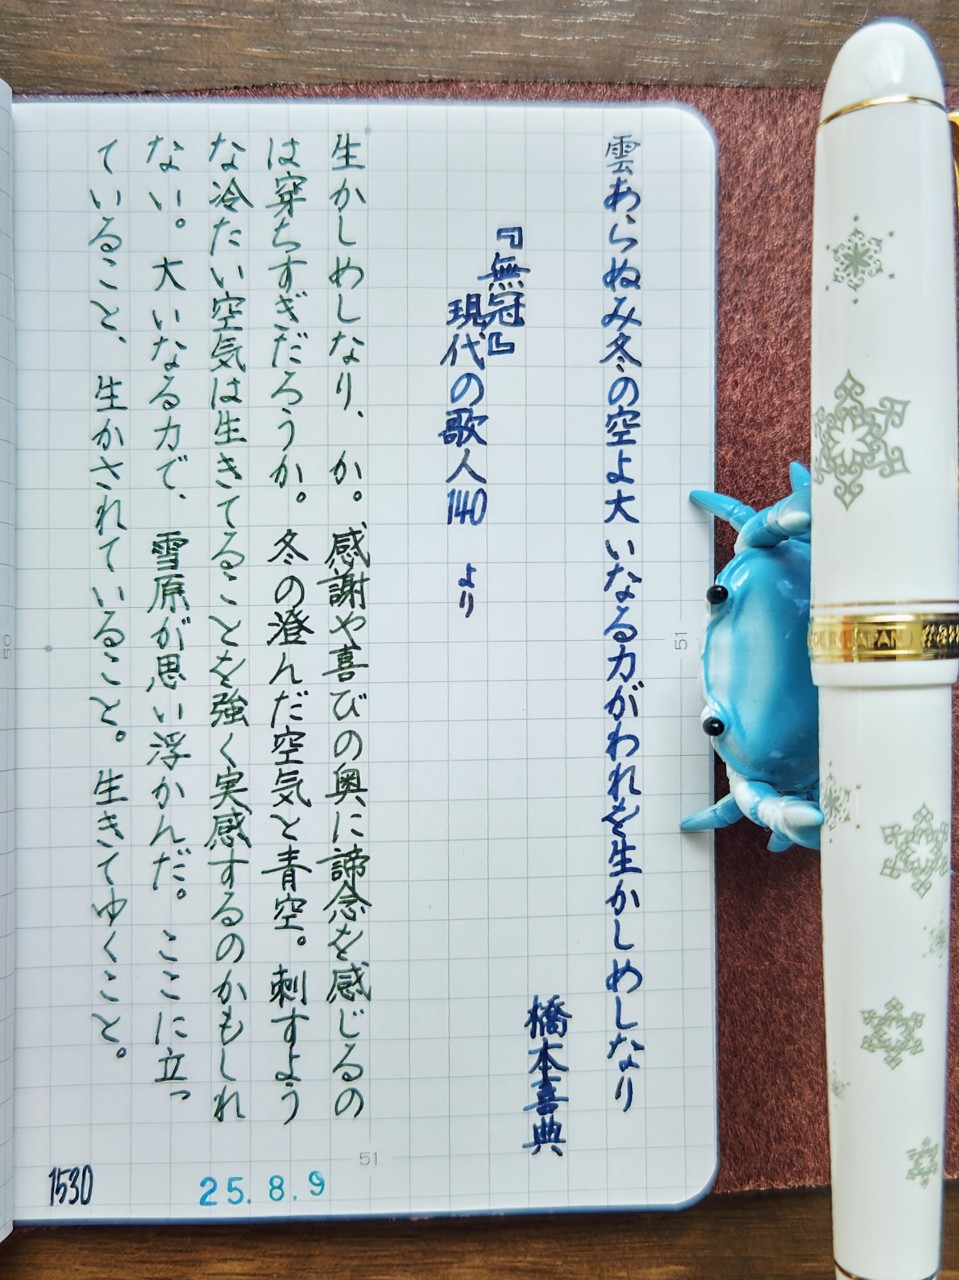 雲あらぬみ冬の空よ大いなる力がわれを生かしめしなり
橋本喜典
『無冠』
現代の歌人140 より
生かしめしなり、か。感謝や喜びの奥に諦念を感じるの
は穿ちすぎだろうか。冬の澄んだ空気と青空。刺すよう
な冷たい空気は生きてることを強く実感するのかもしれ
ない。大いなる力で、雪原が思い浮かんだ。ここに立っ
ていること、生かされていること。生きてゆくこと。
1530
25.8.9
51
51
50
JAPAN